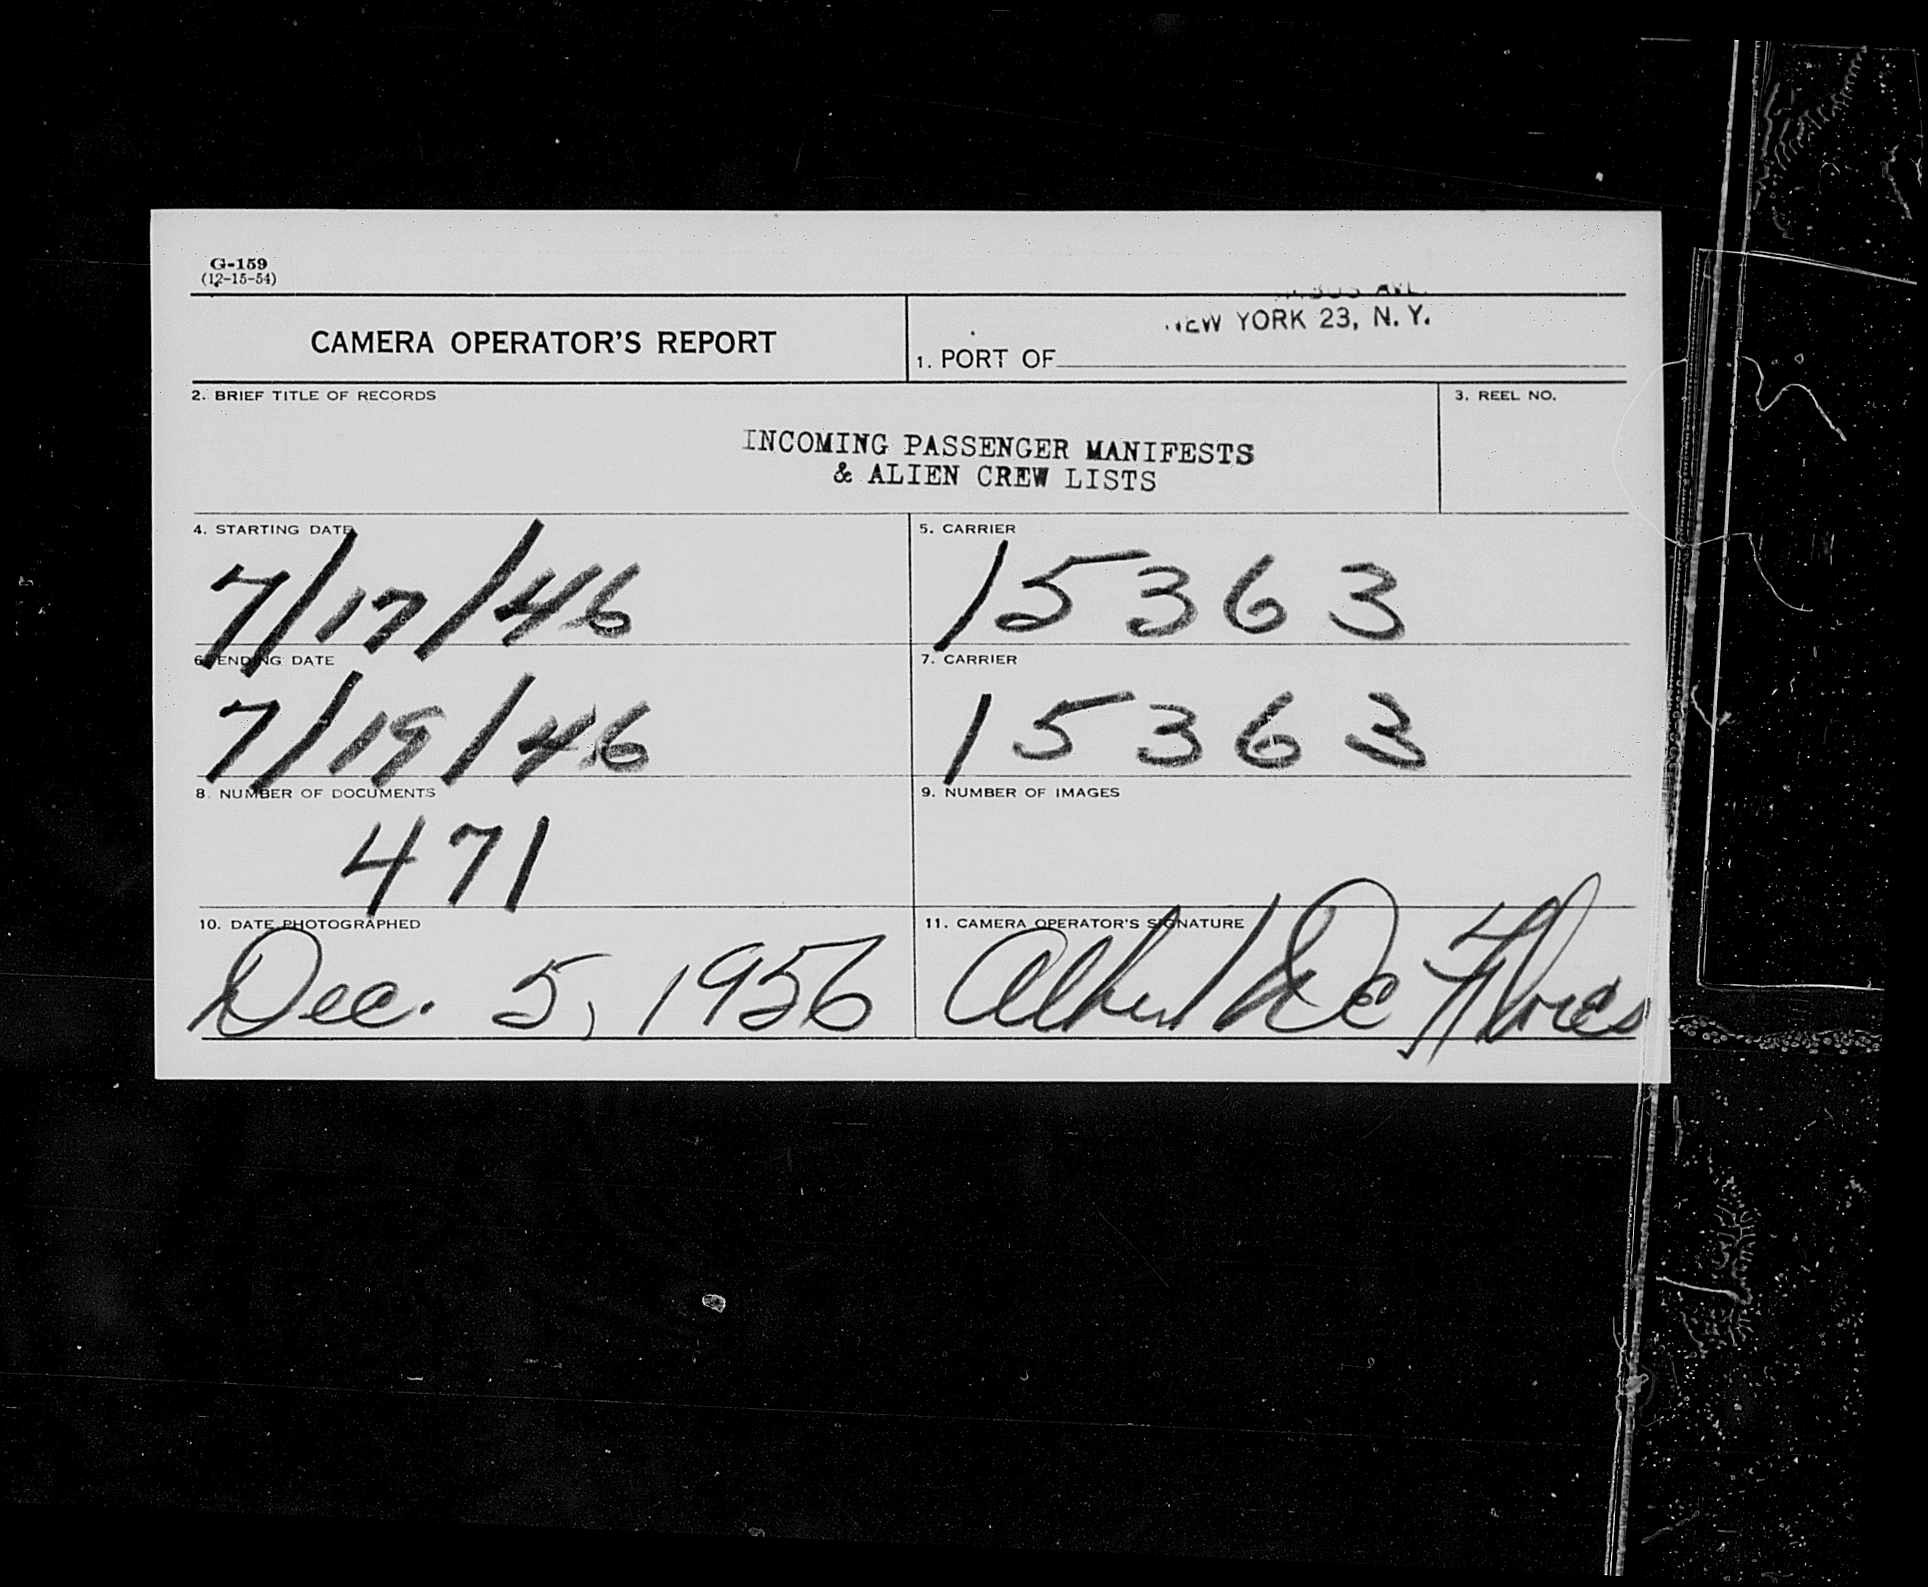 G-159
(12-15-54)
CAMERA OPERATOR'S REPORT
AVE.
NEW YORK 23, N. Y.
1. PORT OF
2. BRIEF TITLE OF RECORDS
3. REEL NO.
INCOMING PASSENGER MANIFESTS
& ALIEN CREW LISTS
4. STARTING DATE
7/17/46
5. CARRIER
15363
6. ENDING DATE
7/19/46
7. CARRIER
15363
8. NUMBER OF DOCUMENTS
471
9. NUMBER OF IMAGES
10. DATE PHOTOGRAPHED
Dec. 5, 1956
11. CAMERA OPERATOR'S SIGNATURE
Albert De